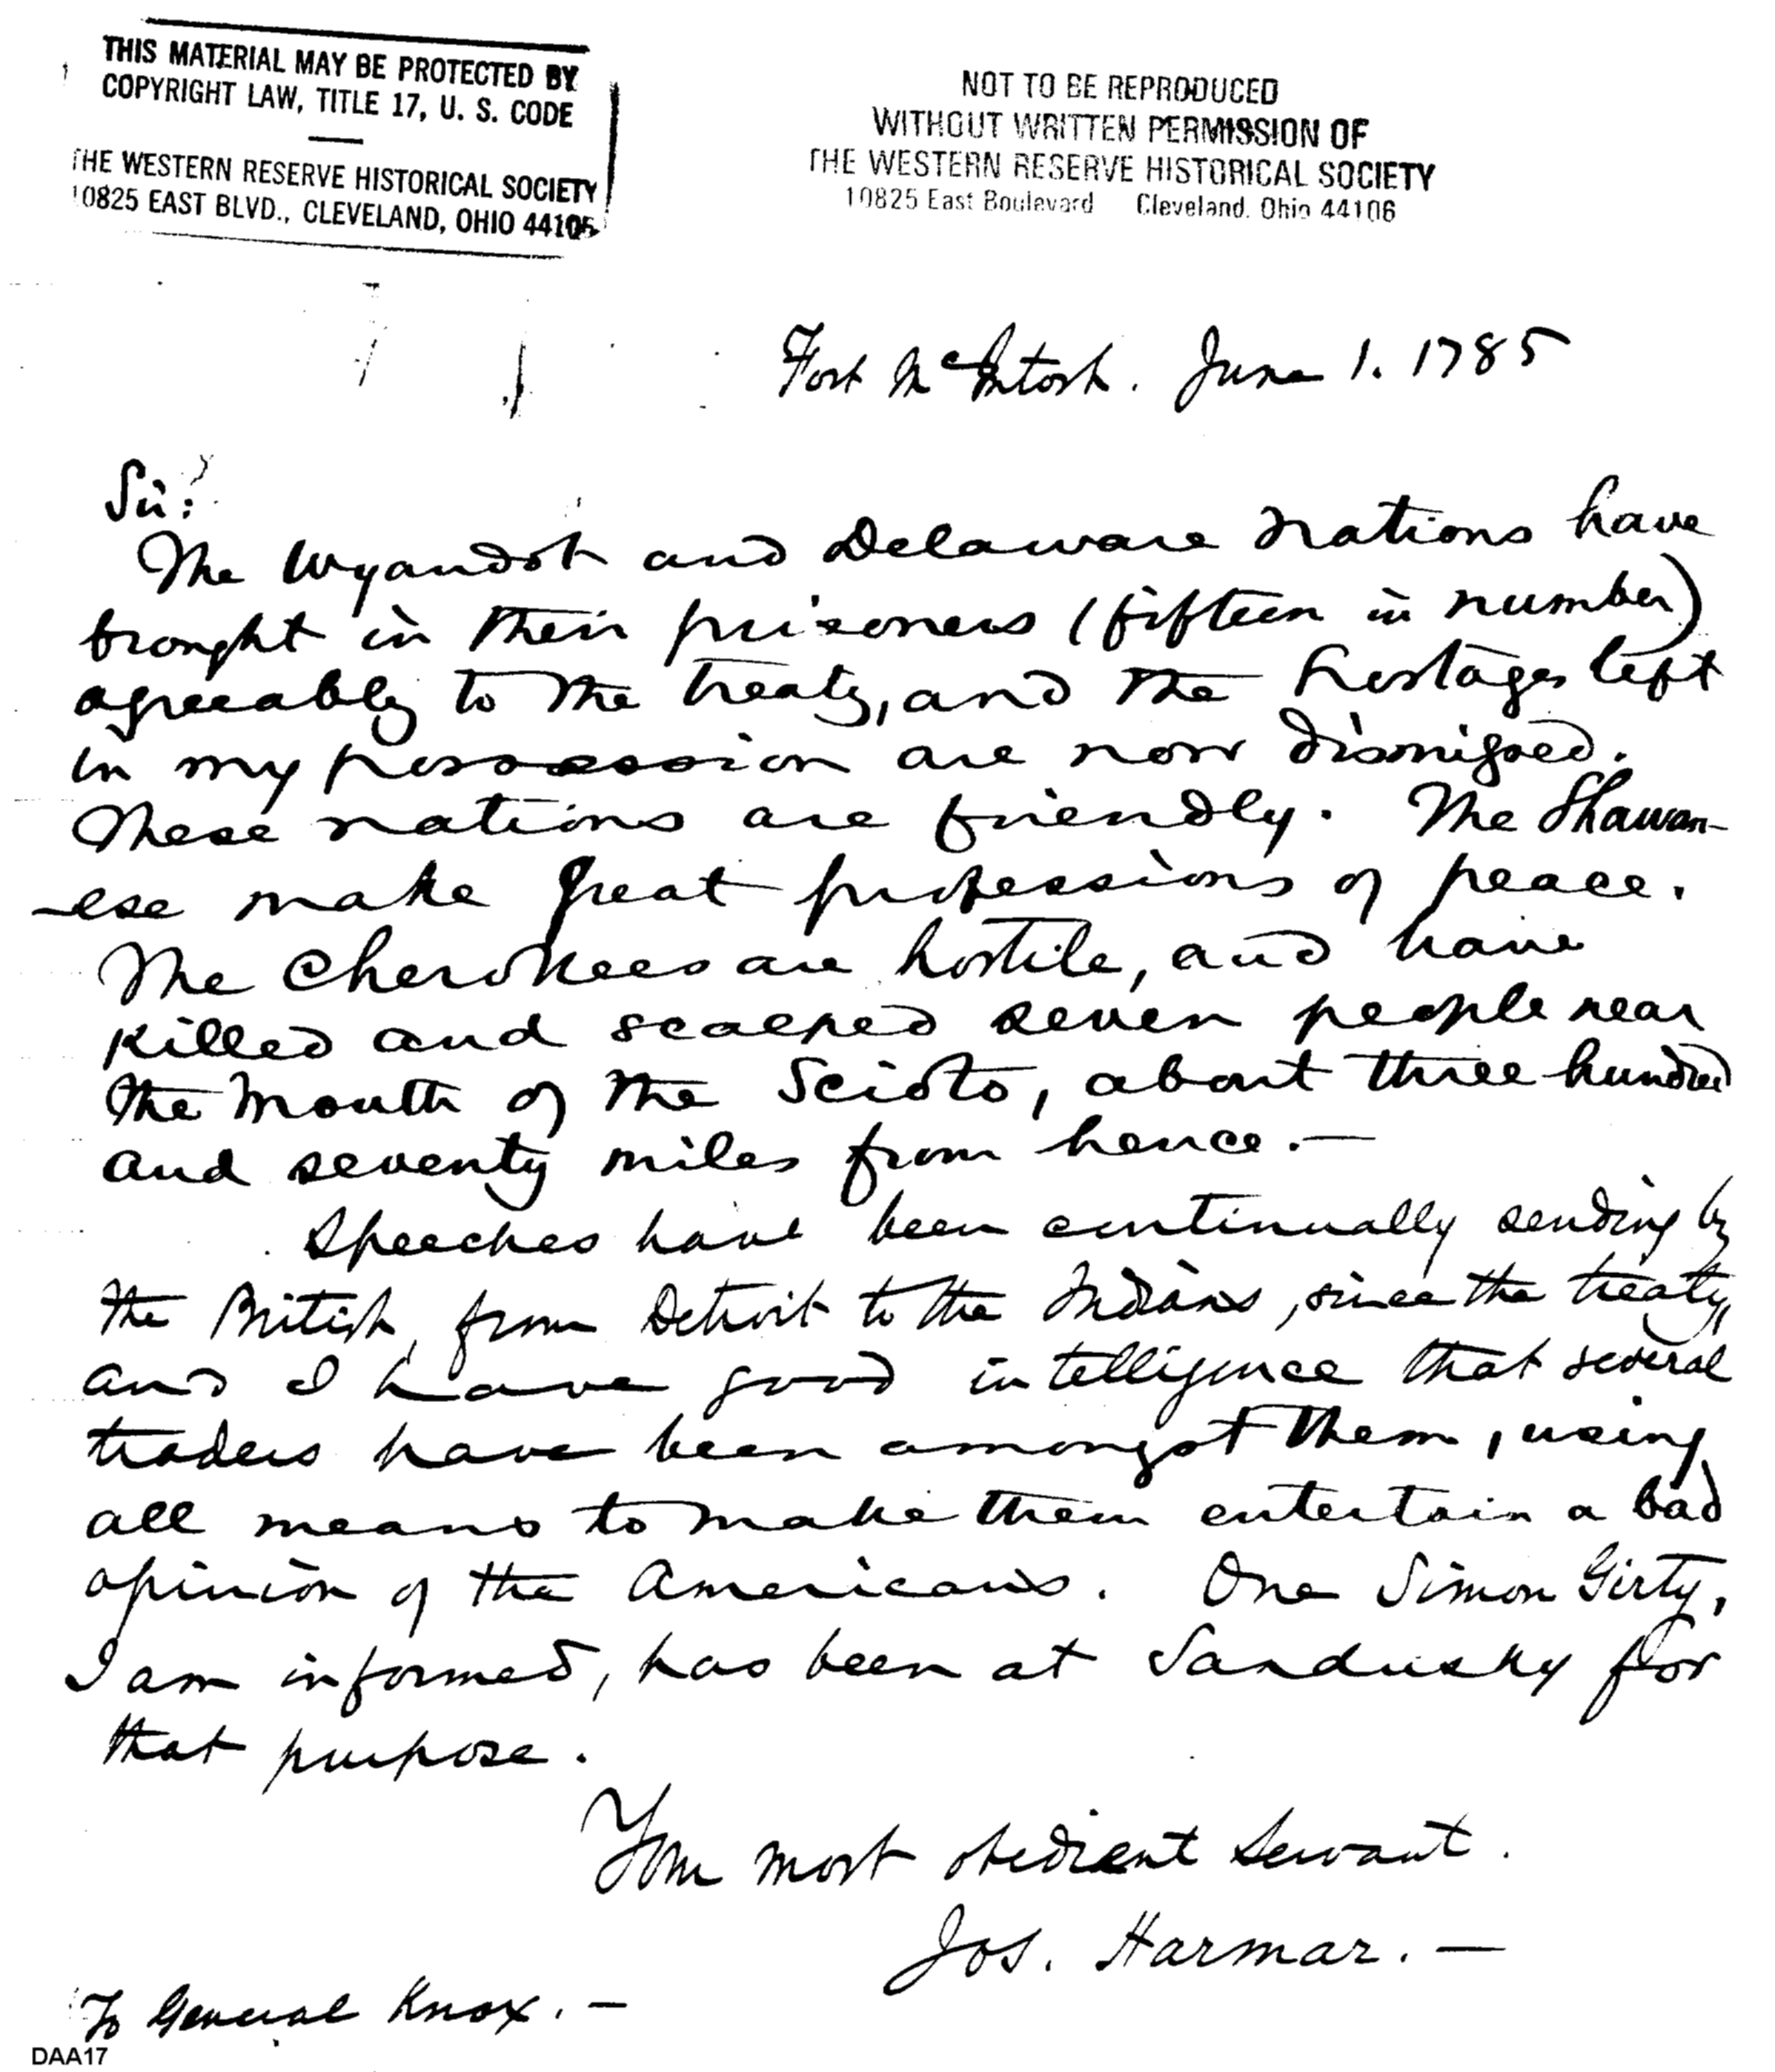 THIS MATERIAL MAY BE PROTECTED BY
COPYRIGHT LAW, TITLE 17, U. S. CODE
THE WESTERN RESERVE HISTORICAL SOCIETY
10825 EAST BLVD., CLEVELAND, OHIO 44106
NOT TO BE REPRODUCED
WITHOUT WRITTEN PERMISSION OF
THE WESTERN RESERVE HISTORICAL SOCIETY
10825 East Boulevard Cleveland, Ohio 44106
Fort McIntosh. June 1. 1785
Sir:
The Wyandot and Delaware nations have
brought in their prisoners (fifteen in number)
agreeably to the treaty, and the hostages left
in my possession are now dismissed.
These nations are friendly. The Shawan-
-ese make great professions of peace.
The Cherokees are hostile, and have
killed and scalped seven people near
the mouth of the Scioto, about three hundred
and seventy miles from hence.—
Speeches have been continually sending by
the British, from Detroit to the Indians, since the treaty,
and I have good intelligence that several
traders have been amongst them, using
all means to make them entertain a bad
opinion of the Americans. One Simon Girty,
I am informed, has been at Sandusky for
that purpose.
Your most obedient servant.
Jos. Harmar.—
To General Knox.—
DAA17